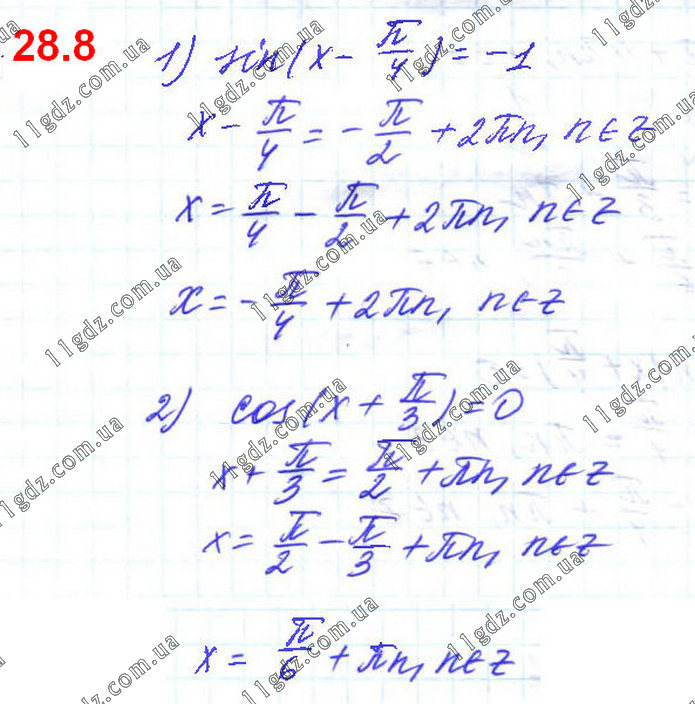 28.8
1) sin(x - π/4) = -1
x - π/4 = -π/2 + 2πn, n∈Z
x = π/4 - π/2 + 2πn, n∈Z
x = -π/4 + 2πn, n∈Z
2) cos(x + π/3) = 0
x + π/3 = π/2 + πn, n∈Z
x = π/2 - π/3 + πn, n∈Z
x = π/6 + πn, n∈Z
11gdz.com.ua